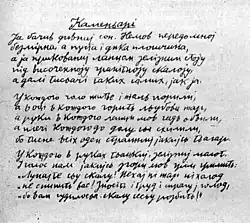 Каменярі
Я бачив дивний сон. Немов передомною
безмірна, а пуста і дика площина,
а я прикований ланцем залізним стою
під височенною гранітною скалою,
а далі тисячі таких самих, як я.
У кождого чоло житє і жаль порили,
і в оці в кождого горить любови жар,
а руки в кождого ланци мов гадь обвили,
а плечі кождого додолу ся схилили,
бо тисне всіх оден страшний якийсь тягар.
У кождого в руках тяжкий, залізний молот
І голос нам якийсь згори мов грім гремить:
"Лупайте сю скалу! Нехай ні жар ні холод
не спинить вас! Зносіть і труд і спрагу, голод,
бо вам призначено скалу сесю розбить!"